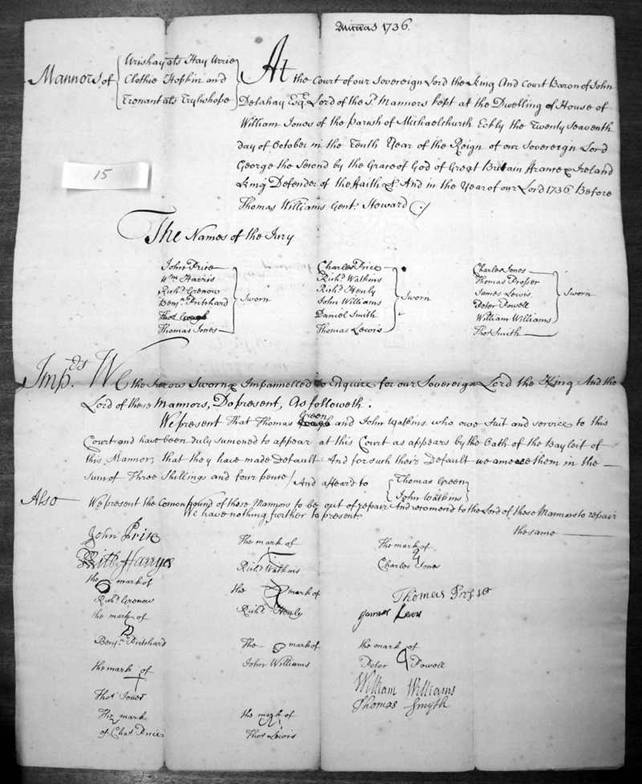 1736.
Mannors of
Urishay ats Hay Urrie
Clothie Hopkin and
Trenant ats Trylwhope
At the Court of our Sovereign Lord the King And Court Baron of John
Delahay Esqr. Lord of the sd. Mannors kept at the Dwelling of House of
William Jones of the Parish of Michaelchurch Eckly the Twenty Seaventh
day of October in the Tenth Year of the Reign of our Sovereign Lord
George the Second by the Grace of God of Great Britain France & Ireland
King Defender of the Faith &c And in the Year of our Lord 1736 Before
Thomas Williams Gent: Steward
15
The Names of the Jury
John Price
Wm Harris
Richd. Gronow
Benja. Pritchard
Thos
Thomas Jones
Sworn
Charles Price
Richd. Watkins
Richd. Henly
John Williams
Daniel Smith
Thomas Lewis
Sworn
Charles Jones
Thomas Prosser
James Lewis
Peter Powell
William Williams
Thos Smith
Sworn
Imps. We the Jurors Sworn & Impannelled to Enquire for our Sovereign Lord the King And the
Lord of these Mannors, Do present, As followeth.
We present That Thomas Green and John Watkins who owe Suit and service to this
Court and have been duly sumoned to appear at this Court as appears by the Oath of the Bayleif of
this Mannor, that they have made Default And for such their Default we amerce them in the
sum of Three Shillings and four pence And affeard to
Thomas Green
John Watkins
Also We present the Comon pound of these Mannors to be out of repair And recomend to the Lord of these Mannors to repair
the same
We have nothing further to present
John Price
Harrys
the mark of
Richd. Gronow
the mark of
Benja. Pritchard
the mark of
Thos. Jones
The mark
of Chas Price
The mark of
Richd Watkins
the mark of
Richd. Henly
The mark of
John Williams
the mark of
Thos Lewis
The mark of
Charles Jones
Thomas Prosser
James Lewis
the mark of
Peter Powell
William Williams
Thomas Smyth